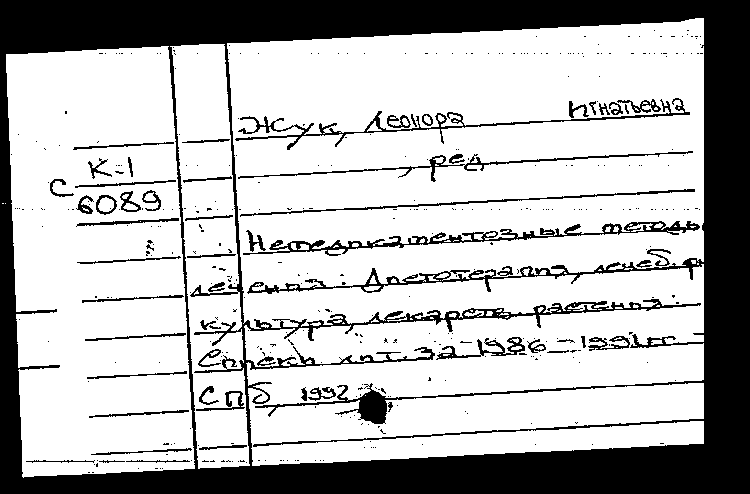 Жук, Леонора Игнатьевна
, ред
К-1
С
6089
Немедикаментозные методы
лечения: Диетотерапия, лечеб. ф
культура, лекарств. растения:
Списки лит. за 1986-1991 гг. -
СПб, 1992